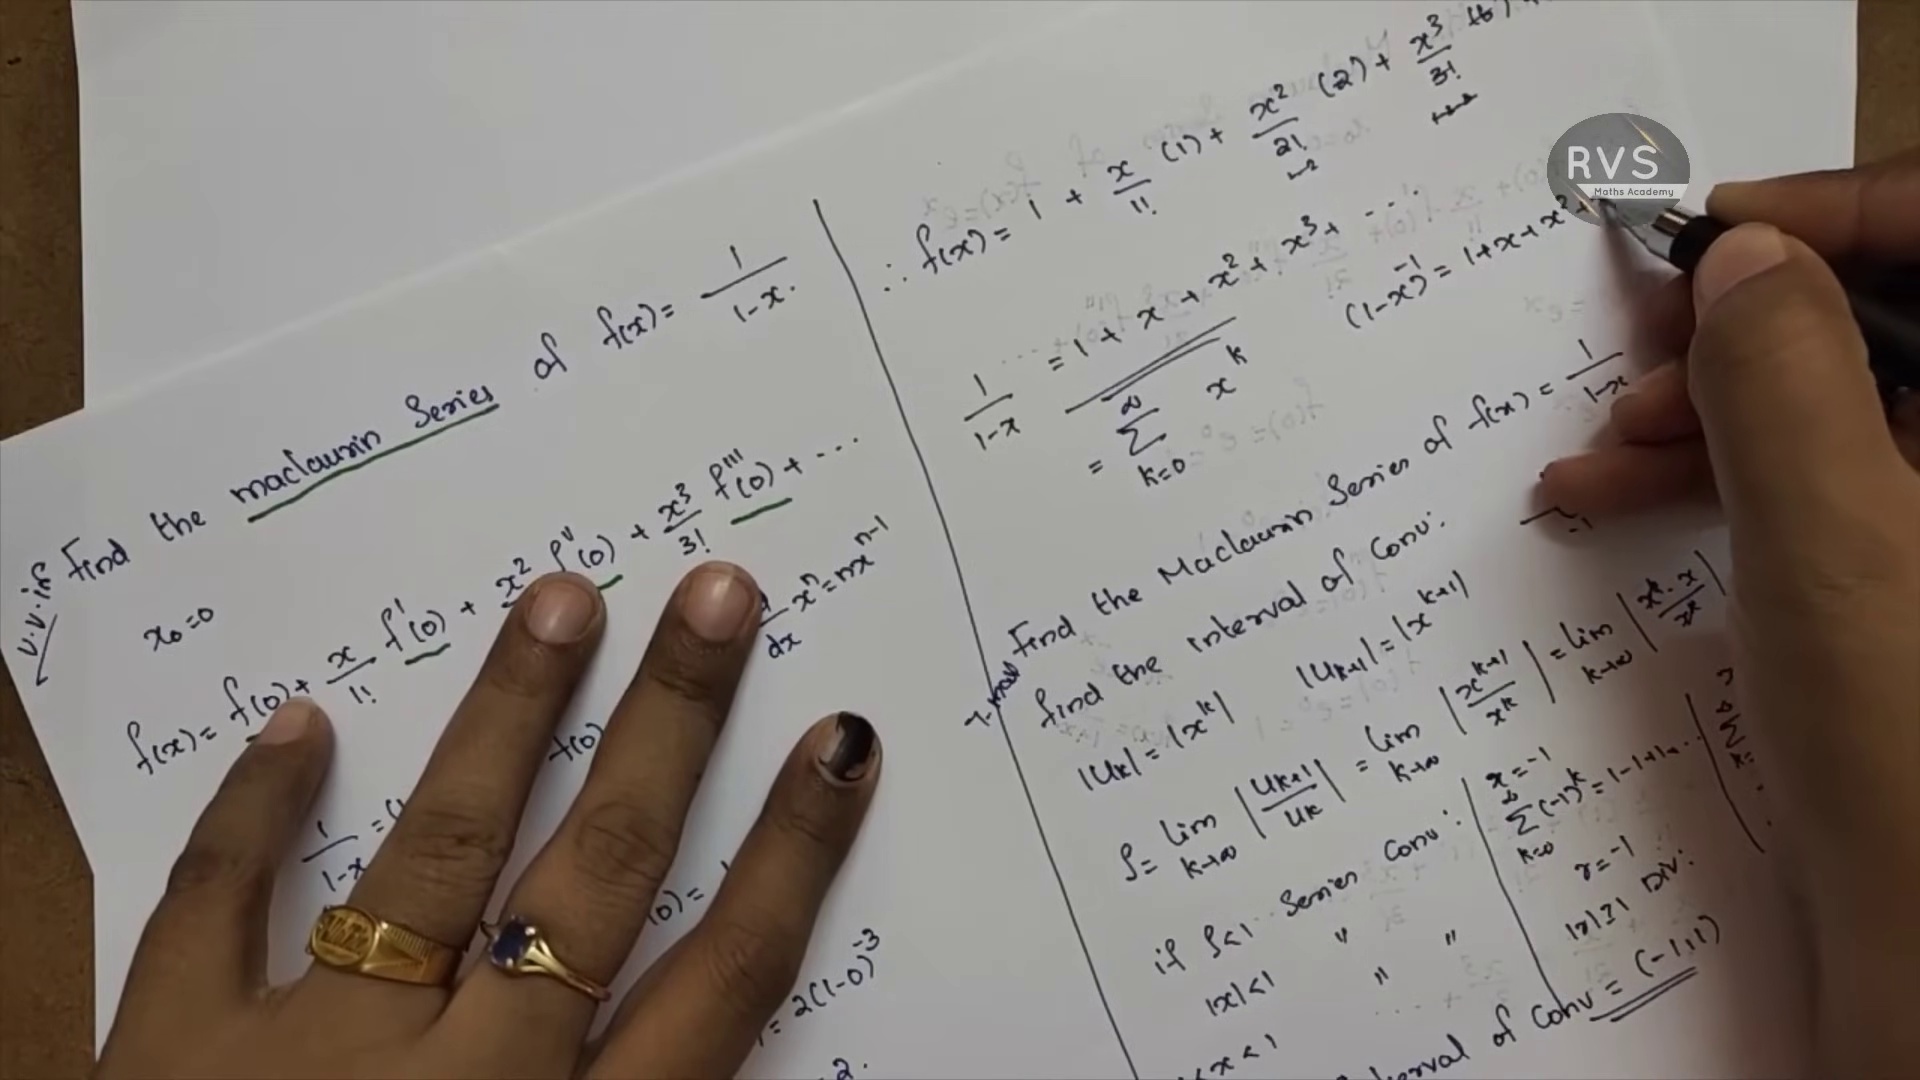 V.V.if
Find the maclaurin Series of f(x) = 1/(1-x).
x₀=0
f(x) = f(0) + x/1! f'(0) + x²/2! f''(0) + x³/3! f'''(0) + ...
d/dx xⁿ = nxⁿ⁻¹
f(0)
1/(1-x) =
(0) =
= 2(1-0)⁻³
= 2.
∴ f(x) = 1 + x/1! (1) + x²/2! (2) + x³/3! (6)
1/(1-x) = 1 + x + x² + x³ + ...
= ∑_{k=0}^{∞} x^k
(1-x)⁻¹ = 1+x+x²+
RVS
Maths Academy
Find the Maclaurin Series of f(x) = 1/(1-x)
find the interval of Conv:
|U_k| = |x^k| |U_{k+1}| = |x^{k+1}|
ρ = lim_{k→∞} |U_{k+1}/U_k| = lim_{k→∞} |x^{k+1}/x^k| = lim_{k→∞} |x^k·x/x^k|
if ρ<1 Series Conv:
|x|<1 " "
x<1
x=-1
∑_{k=0}^{∞} (-1)^k = 1-1+1...
r=-1
|r|≥1 Div:
interval of Conv = (-1,1)